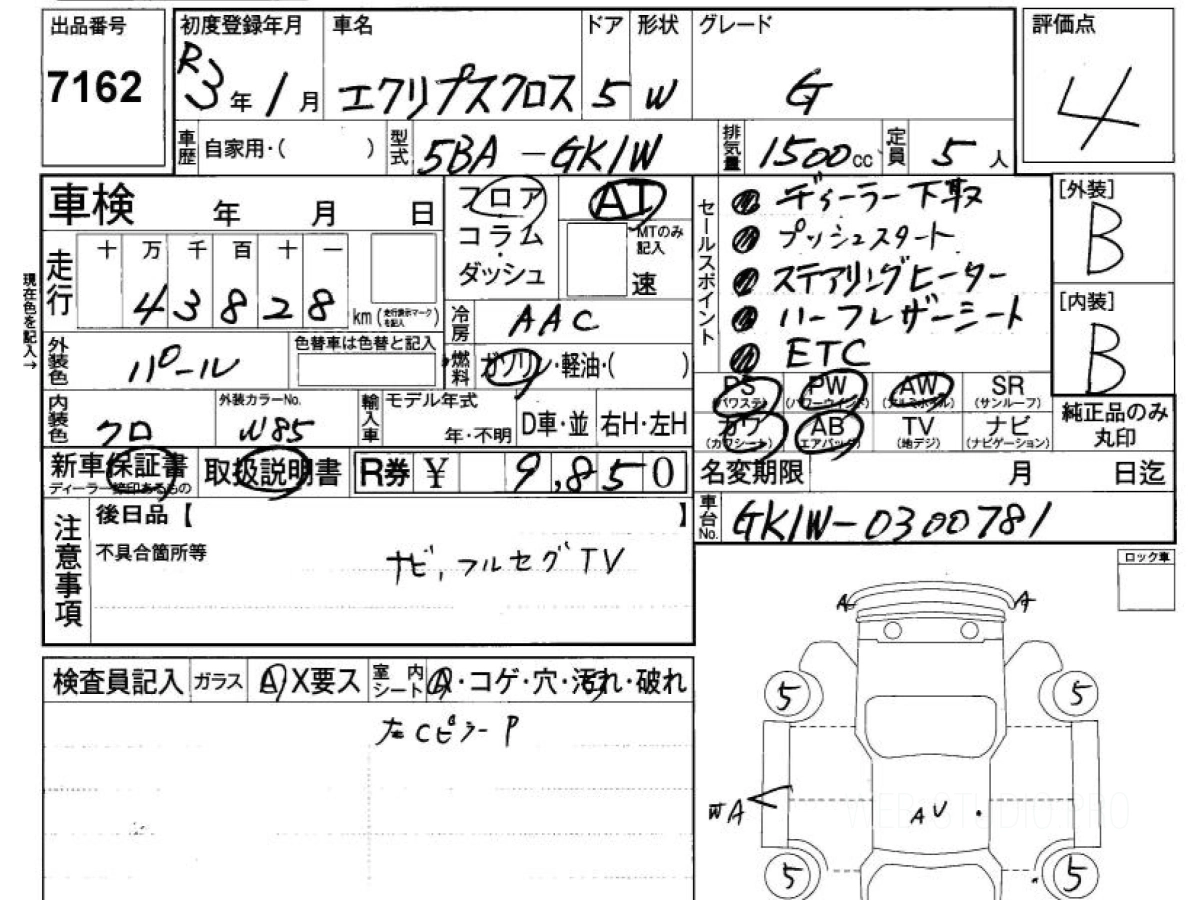 出品番号 初度登録年月 車名 ドア 形状 グレード 評価点
7162 R3年1月 エクリプスクロス 5 W G 4
車歴 自家用・( ) 型式 5BA-GK1W 排気量 1500cc 定員 5人
車検 年 月 日
走行 十 万 千 百 十 一
43828 km (走行表示マークを記入)
現在色を記入→
外装色 パール 色替車は色替と記入
内装色 クロ 外装カラーNo. W85
輸入車 モデル年式 年・不明 D車・並 右H・左H
フロア
コラム
・
ダッシュ
AI
MTのみ記入
速
冷房 AAC
燃料 ガソリン・軽油・( )
セールスポイント
ディーラー下取
プッシュスタート
ステアリングヒーター
ハーフレザーシート
ETC
[外装]
B
[内装]
B
純正品のみ
丸印
PS PW AW SR
(パワステ) (パワーウインド) (アルミホイル) (サンルーフ)
カワ AB TV ナビ
(カワシート) (エアバック) (地デジ) (ナビゲーション)
新車保証書 取扱説明書 R券 ¥ 9,850
ディーラー捺印あるもの
名変期限 月 日迄
車台No. GK1W-0300781
注意事項
後日品【 】
不具合箇所等
ナビ,フルセグTV
ロック車
検査員記入 ガラス A X要ス 室内シート A・コゲ・穴・汚れ・破れ
左CピラーP
A A
5 5
WA AV
5 5
WEB STUDIO PRO